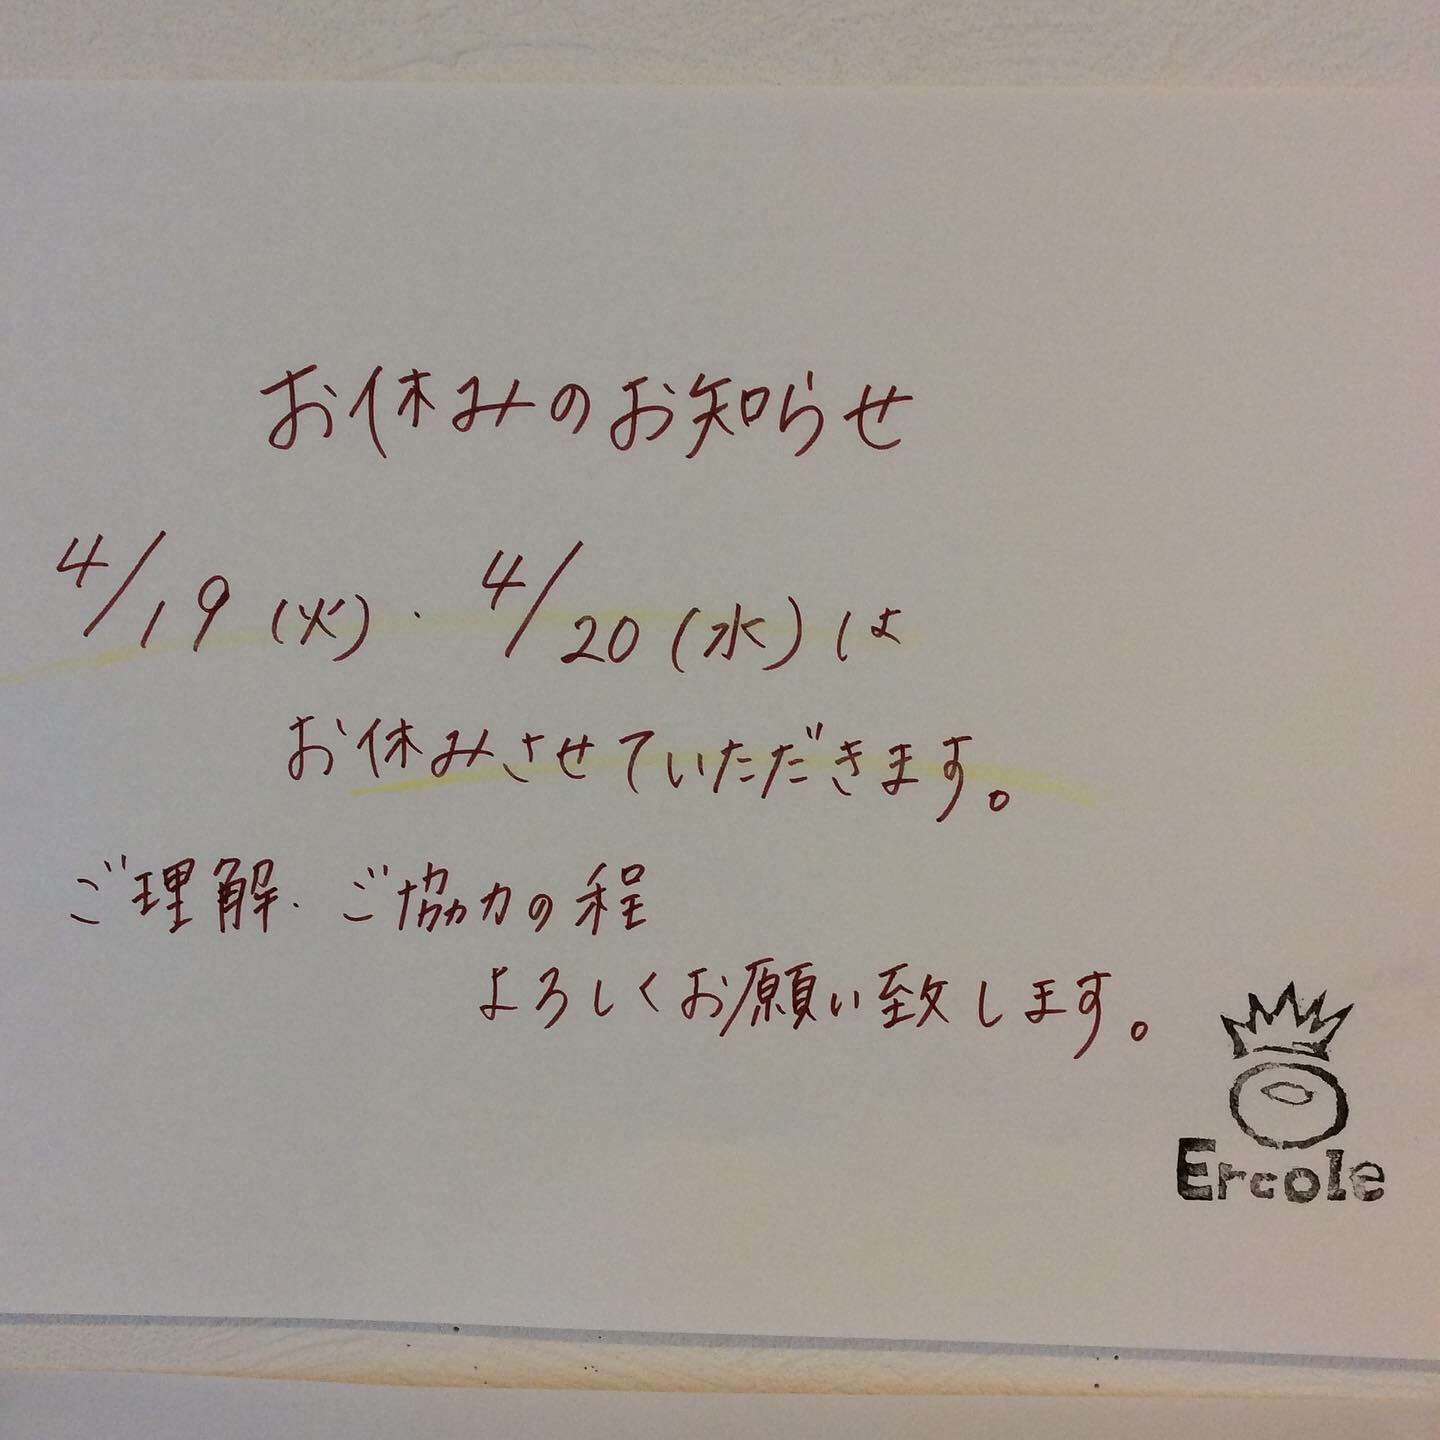 お休みのお知らせ
4/19(火)・4/20(水)は
お休みさせていただきます。
ご理解・ご協力の程
よろしくお願い致します。
Ercole